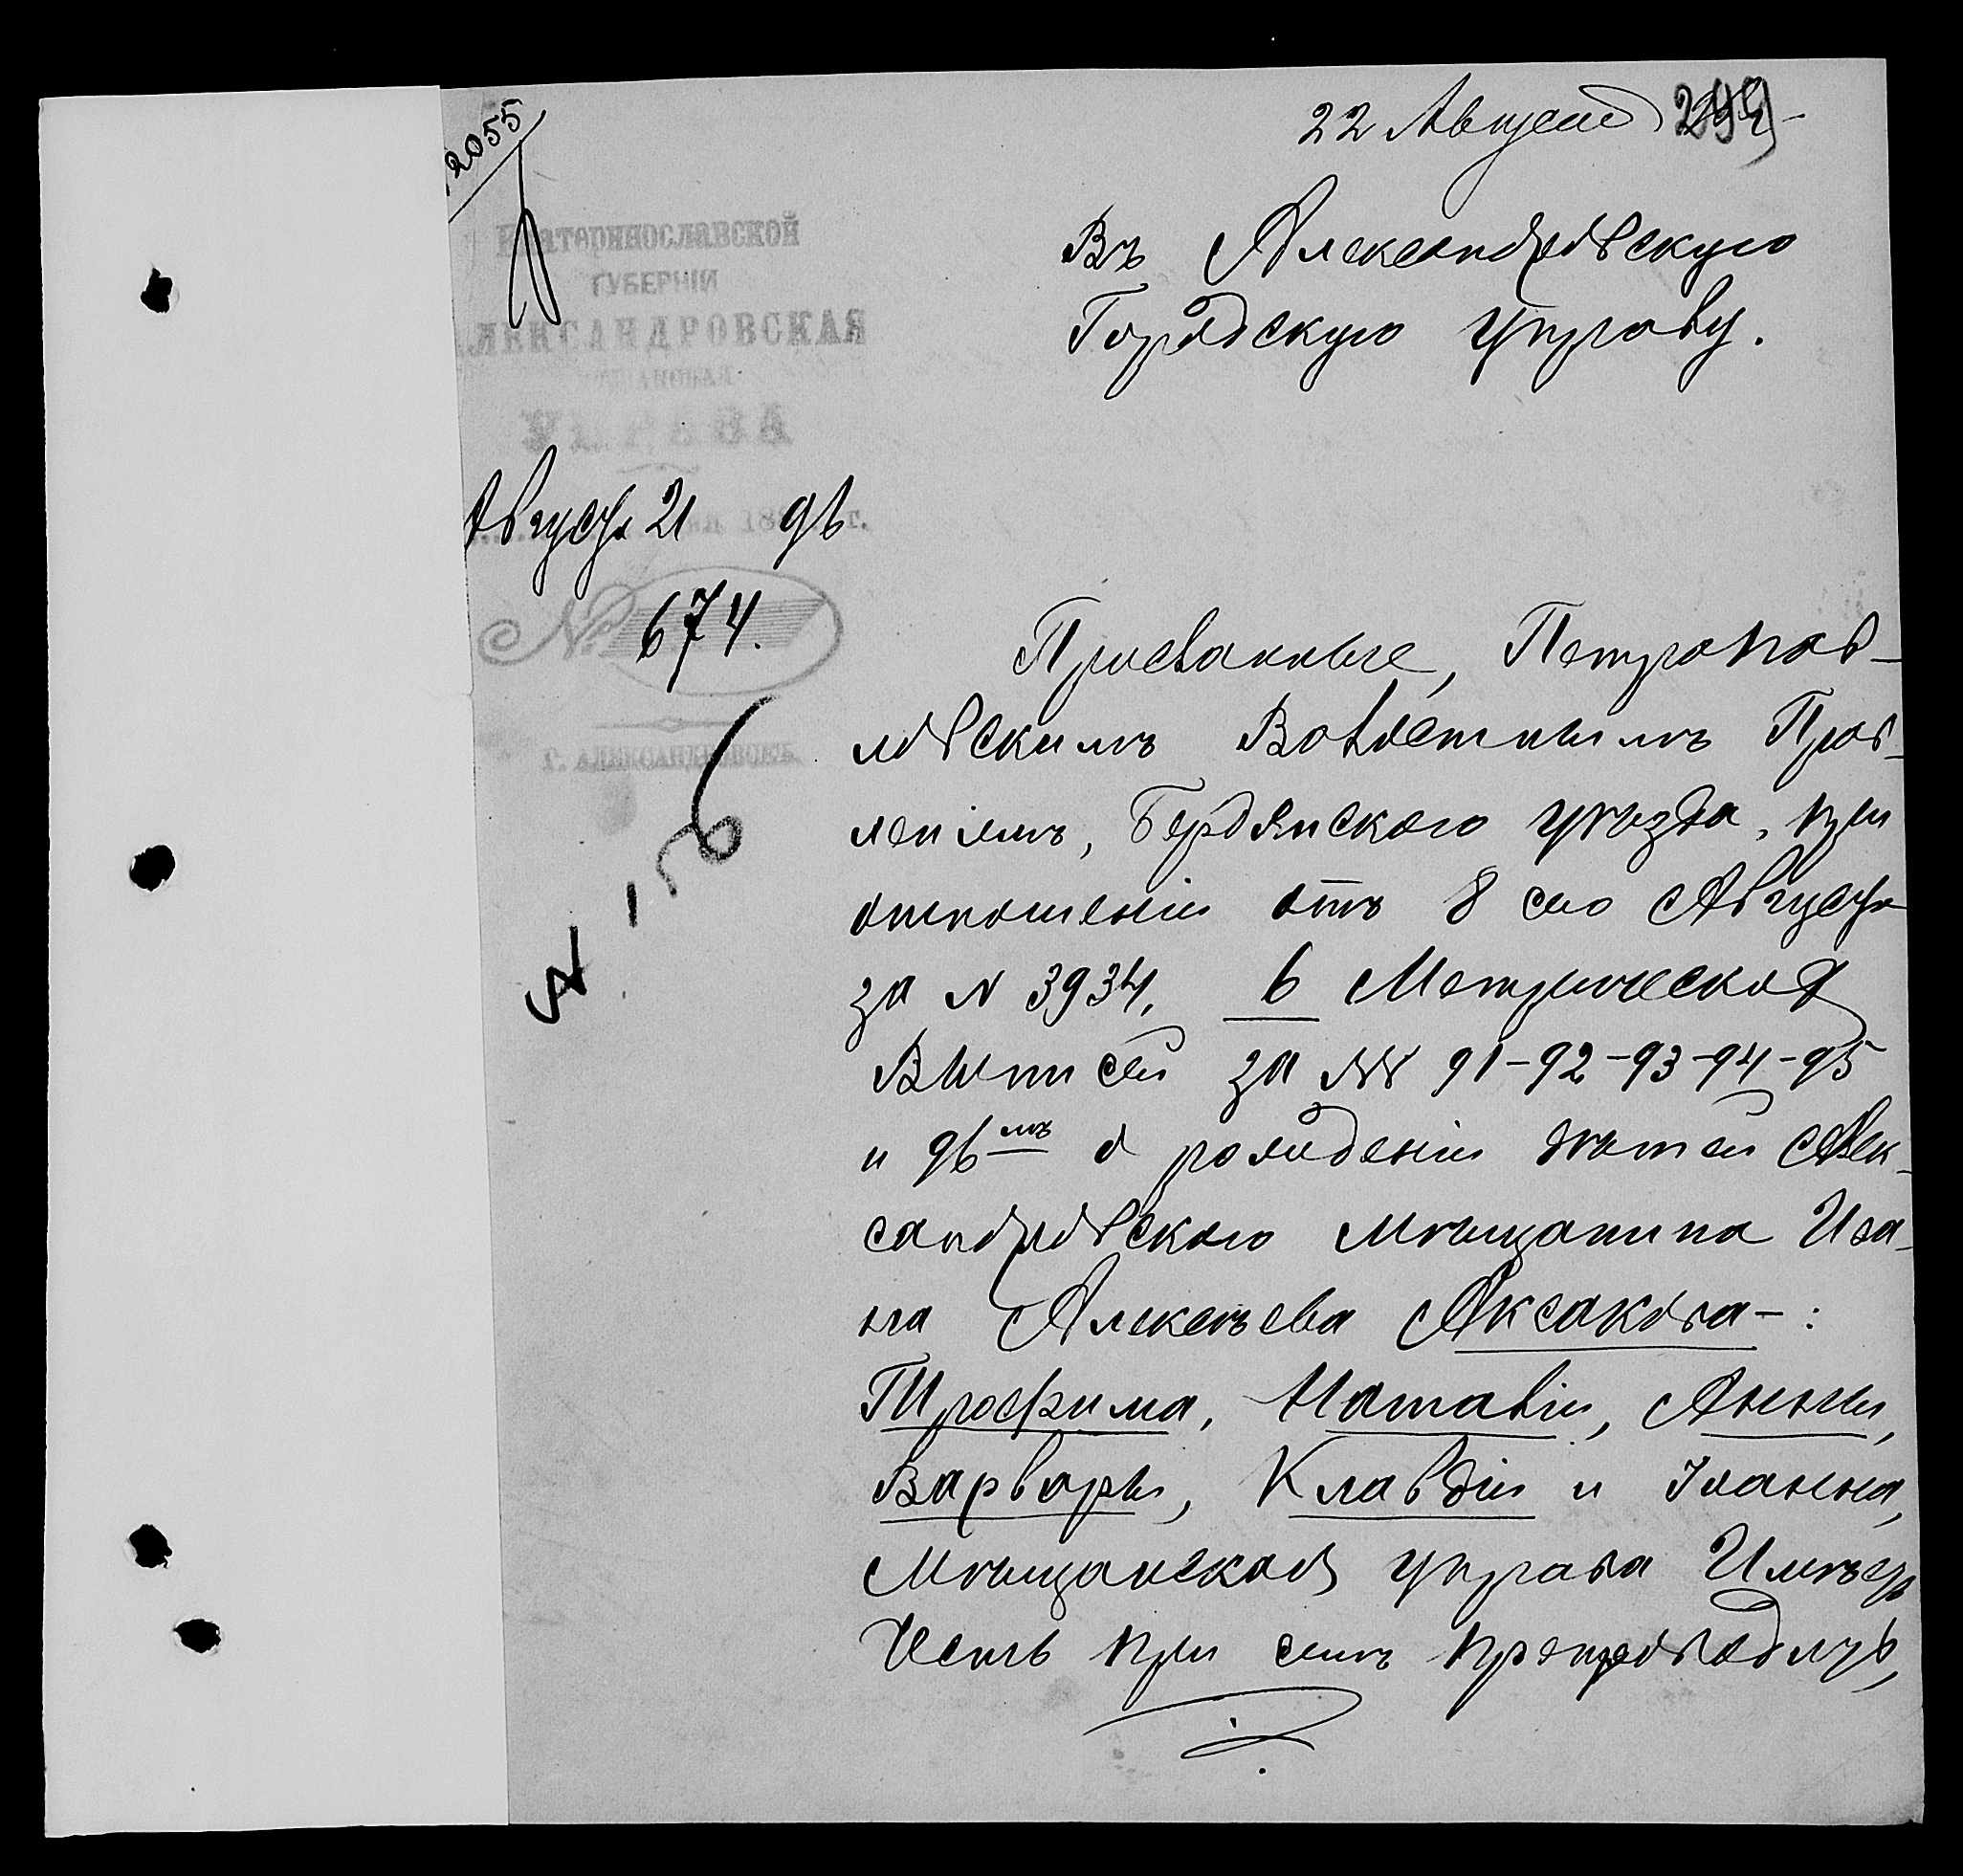 2055
22 Августа
Екатеринославской
ГУБЕРНІИ
АЛЕКСАНДРОВСКАЯ
МѢЩАНСКАЯ
УПРАВА
Августа 21 дня 1896 г.
№ 674.
Г. АЛЕКСАНДРОВСКЪ.
N 156
Въ Александровскую
Городскую Управу.
Присланные, Петропав-
ловскимъ Волостнымъ Прав-
леніемъ, Бердянскаго уѣзда, при
отношеніи отъ 8 сего Августа
за N 3934, 6 Метрическихъ
Выписей за NN 91-92-93-94-95
и 96мъ о рожденіи дѣтей Алек-
сандровскаго Мѣщанина Ива-
на Алексѣева Аксакова-:
Трофима, Наталіи, Анны,
Варвары, Клавдіи и Іоанна,
Мѣщанская управа Имѣетъ
Честь при семъ препроводить,